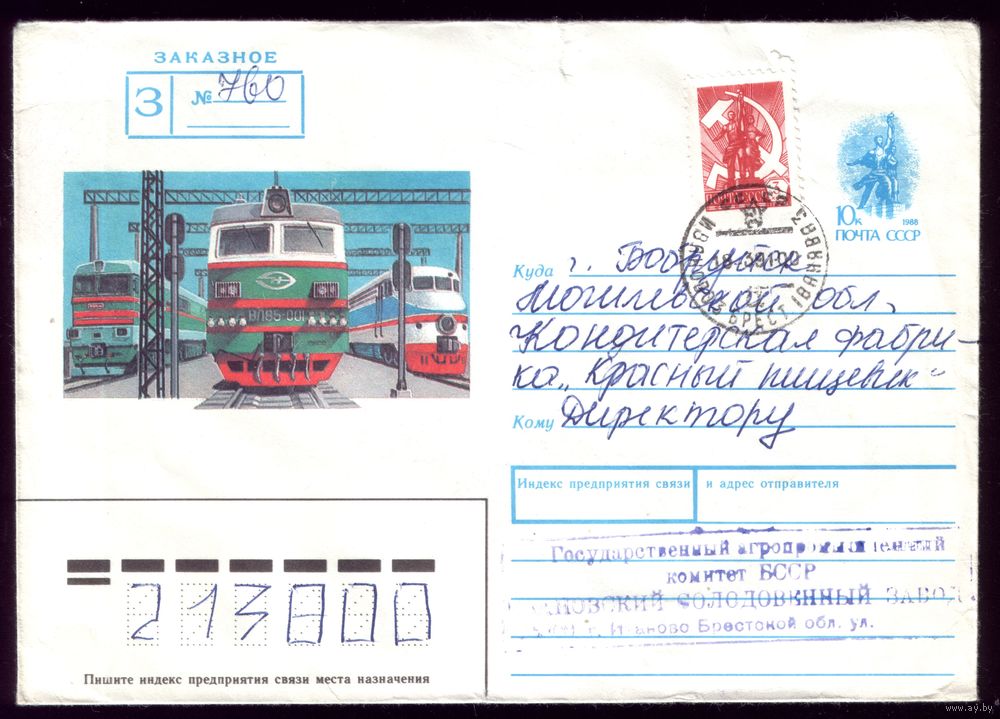 ЗАКАЗНОЕ
З
№ 760
ВЛ85-001
10к
1988
ПОЧТА СССР
Куда г. Бобруйск
Могилевской обл,
Кондитерская фабри-
ка „Красный пищевик"
Кому Директору
Индекс предприятия связи и адрес отправителя
Государственный агропромышленный
комитет БССР
СОЛОДОВЕННЫЙ ЗАВОД
г. Иваново Брестской обл. ул.
213800
Пишите индекс предприятия связи места назначения
www.ay.by